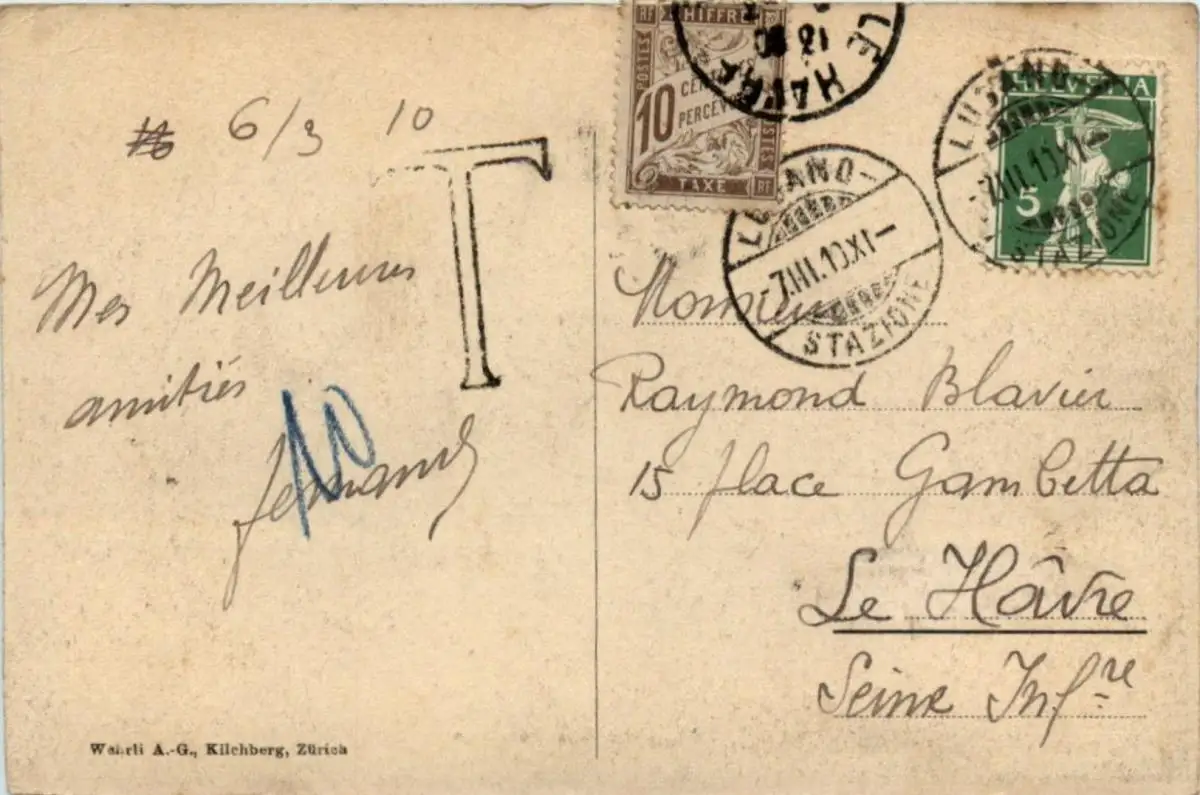 6/3 10
T
Mes Meilleures
amitiés
10
Fernand
Wehrli A.-G., Kilchberg, Zürich
POSTES
RF
CHIFFRE
10
CENTIMES
À PERCEVOIR
TAXE
RF
POSTES
LE HAVRE
LUGANO
-7.III.10.XI-
STAZIONE
HELVETIA
5
LUGANO
-7.III.10.XI-
STAZIONE
Monsieur
Raymond Blavier
15 place Gambetta
Le Hâvre
Seine Infre